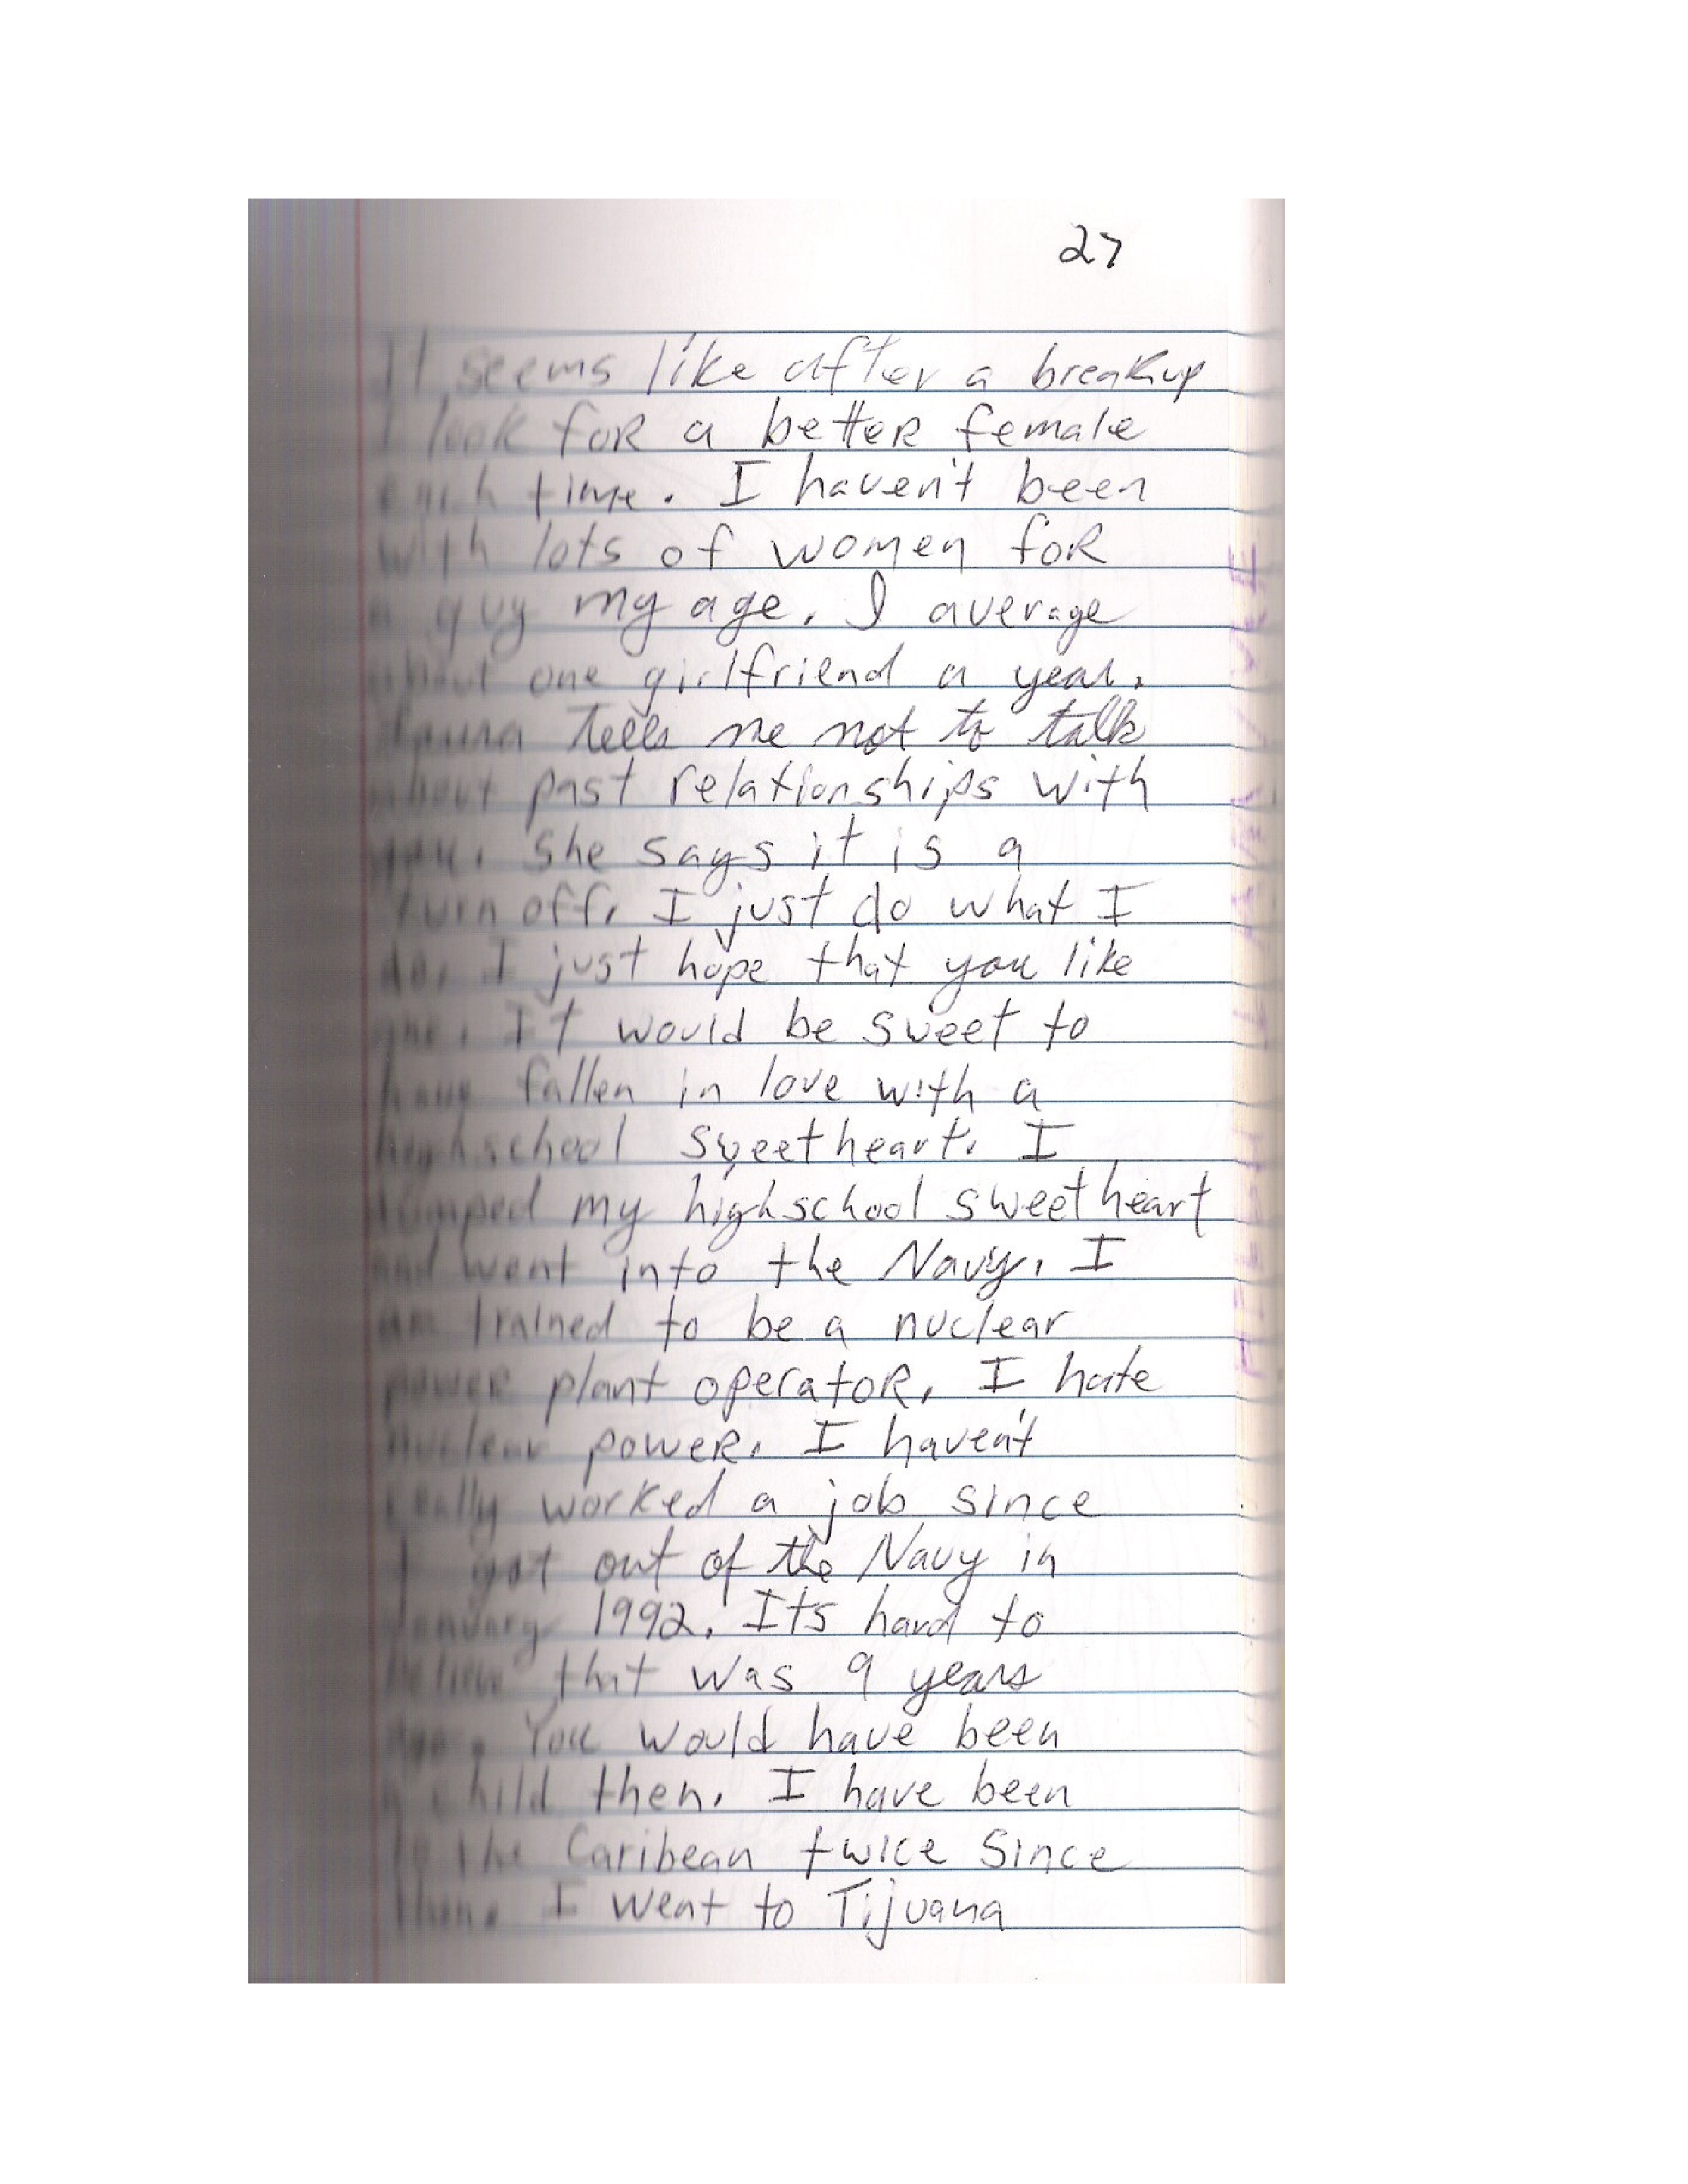 27
It seems like after a breakup
I look for a better female
each time. I haven't been
with lots of women for
a guy my age. I average
about one girlfriend a year.
Laura tells me not to talk
about past relationships with
you. She says it is a
turn off. I just do what I
do. I just hope that you like
me. It would be sweet to
have fallen in love with a
highschool sweetheart. I
dumped my highschool sweetheart
and went into the Navy. I
am trained to be a nuclear
power plant operator. I hate
nuclear power. I haven't
really worked a job since
I got out of the Navy in
January 1992. Its hard to
believe that was 9 years
ago. You would have been
a child then. I have been
to the Caribean twice since
then. I went to Tijuana